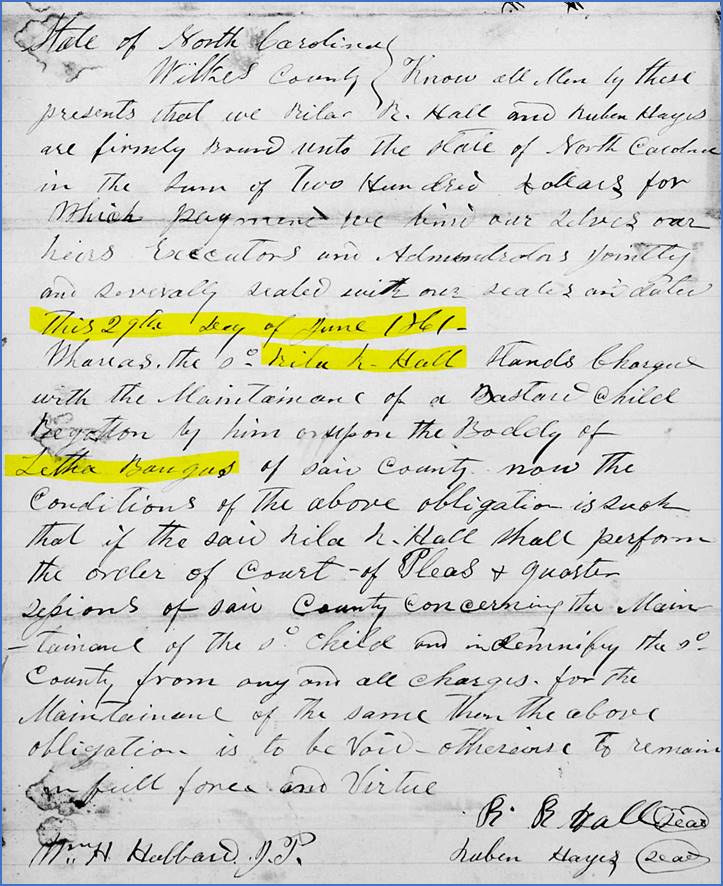 State of North Carolina
Wilkes County } Know all Men by these
presents that we Rila R. Hall and Ruben Hayes
are firmly Bound unto the State of North Carolina
in the Sum of Two Hundred dollars for
Which payment we bind our selves our
heirs Executors and Jointly
and severally sealed with our seales and dated
This 29th Day of June 1861-
Whereas. the sd. Rila R. Hall Stands Charged
with the Maintainance of a Bastard Child
by him upon the Boddy of
Letha Baugus of said County. now the
Conditions of the above obligation is such
that if the said Rila R. Hall shall perform
the order of Court - of Pleas & quarter
sessions of said County concerning the Main
-tainance of the sd. Child and indemnifey the sd.
County from any and all charges. for the
Maintainance of the same then the above
obligation is to be Void - otherwise to remain
in full force and Virtue
R. R Hall (Seal)
Wm H Hubbard J.P. Ruben Hayes (Seal)